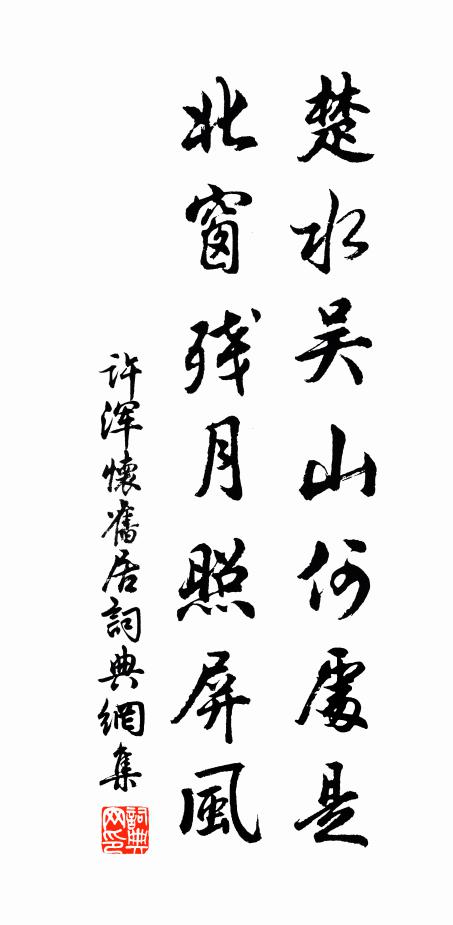 楚水吴山何處是
北窗残月照屏風
许浑懷舊居詞典網集
詞典网印